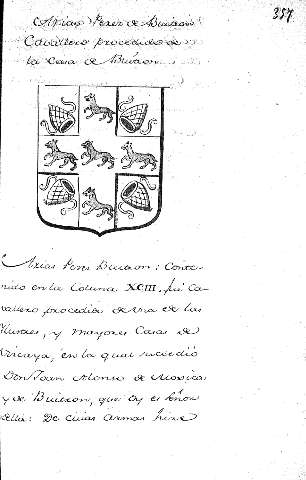 357
Arias Perez de Buitron
Cavallero procedido de
la Casa de Buitron.
Arias Pens Buitron: Conte-
nido en la Coluna XCIII, fué Ca-
vallero procedido de una de las
Illustres, y mayores Casas de
Vizcaya, en la qual sucedió
Don Juan Alonso de Moxica
y de Buitron, que oy es Señor
della: De cuias armas hize